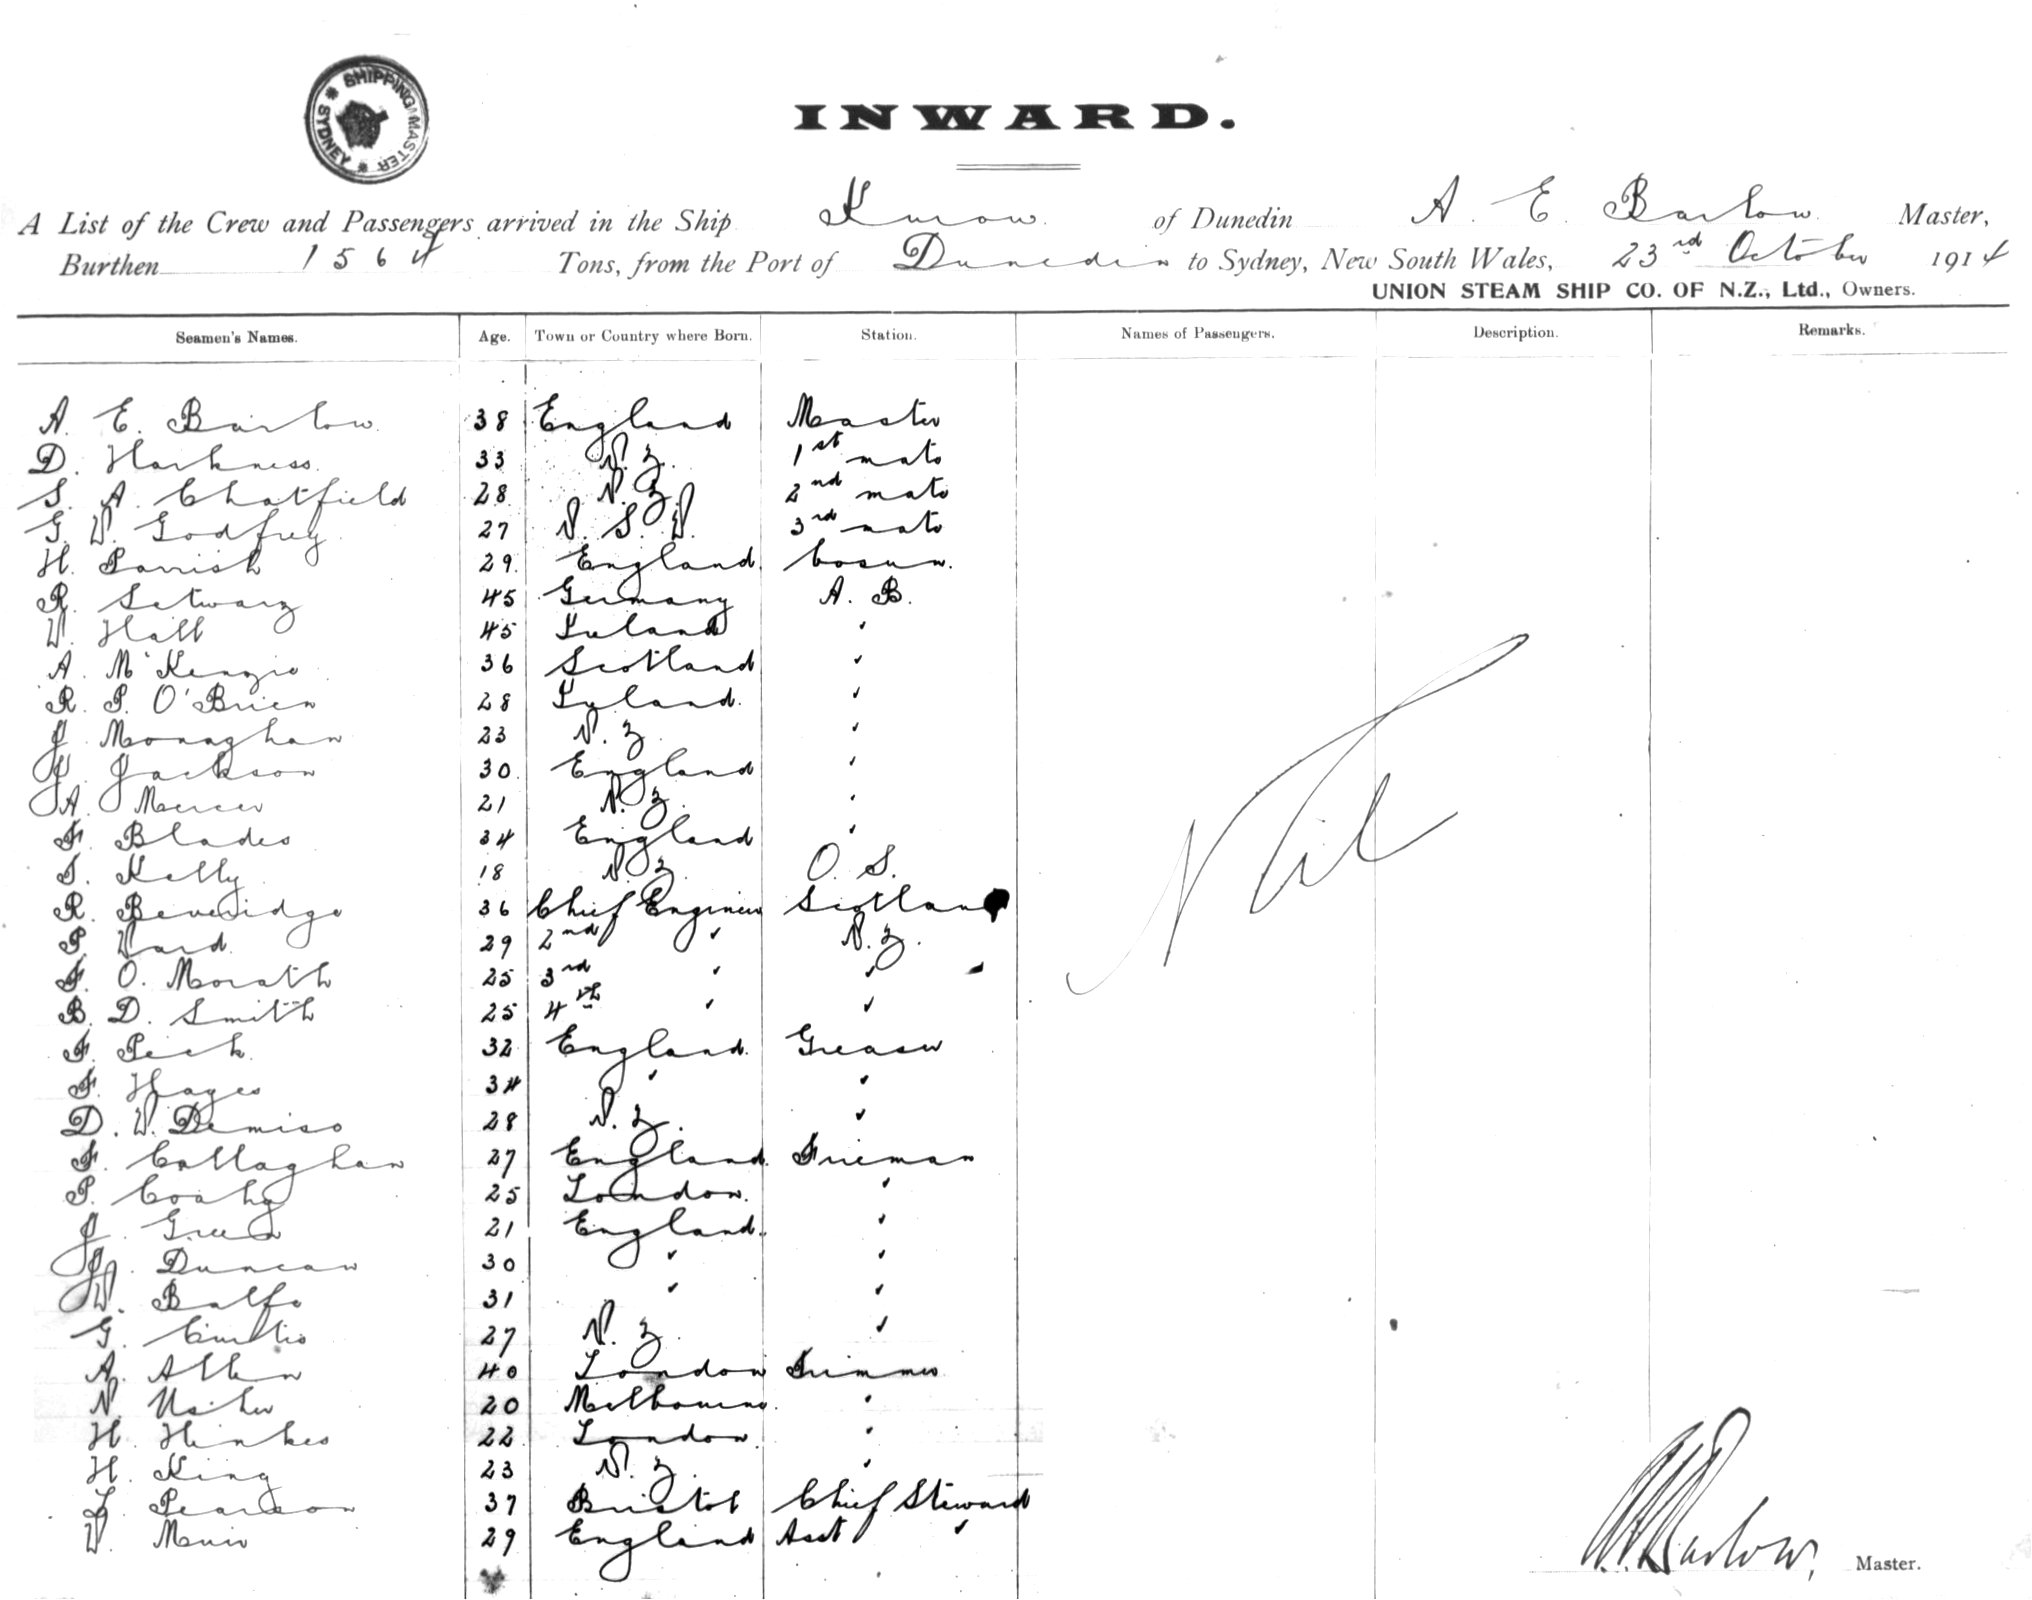 SHIPPING MASTER * SYDNEY *
INWARD.
A List of the Crew and Passengers arrived in the Ship Kurow of Dunedin A. E. Barlow Master,
Burthen 1564 Tons, from the Port of Dunedin to Sydney, New South Wales, 23rd October 1914
UNION STEAM SHIP CO. OF N.Z., Ltd., Owners.
Seamen's Names. Age. Town or Country where Born. Station. Names of Passengers. Description. Remarks.
A. E. Barlow 38 England Master
D. Harkness 33 N.Z. 1st mate
S. A. Chatfield 28 N.Z. 2nd mate
G. W. Godfrey 27 N.S.W. 3rd mate
H. Parrish 29 England. bosun.
R. Setwarz 45 Germany A. B.
W. Hall 45 Ireland "
A. McKenzie 36 Scotland "
R. P. O'Brien 28 Ireland. "
J. Monaghan 23 N.Z. "
J. Jackson 30 England "
A. Mercer 21 N.Z. "
F. Blades 34 England "
S. Kelly 18 N.Z. O. S.
R. Beveridge 36 Chief Engineer Scotland
P. Ward 29 2nd " N.Z.
F. O. Morath 25 3rd " "
B. D. Smith 25 4th " "
F. Peek 32 England. Greaser
F. Hayes 34 " "
D. W. 28 N.Z. "
F. Callaghan 27 England. Fireman
P. 25 London. "
J. Green 21 England. "
J. Duncan 30 " "
W. Balfe 31 " "
G. Curtis 27 N.Z. "
A. Allen 40 London Trimmer
N. Usher 20 Melbourne. "
H. Hinkes 22 London. "
H. King 23 N.Z. "
L. Pearson 37 Bristol Chief Steward
W. Muir 29 England Asst "
Nil
A. E. Barlow, Master.